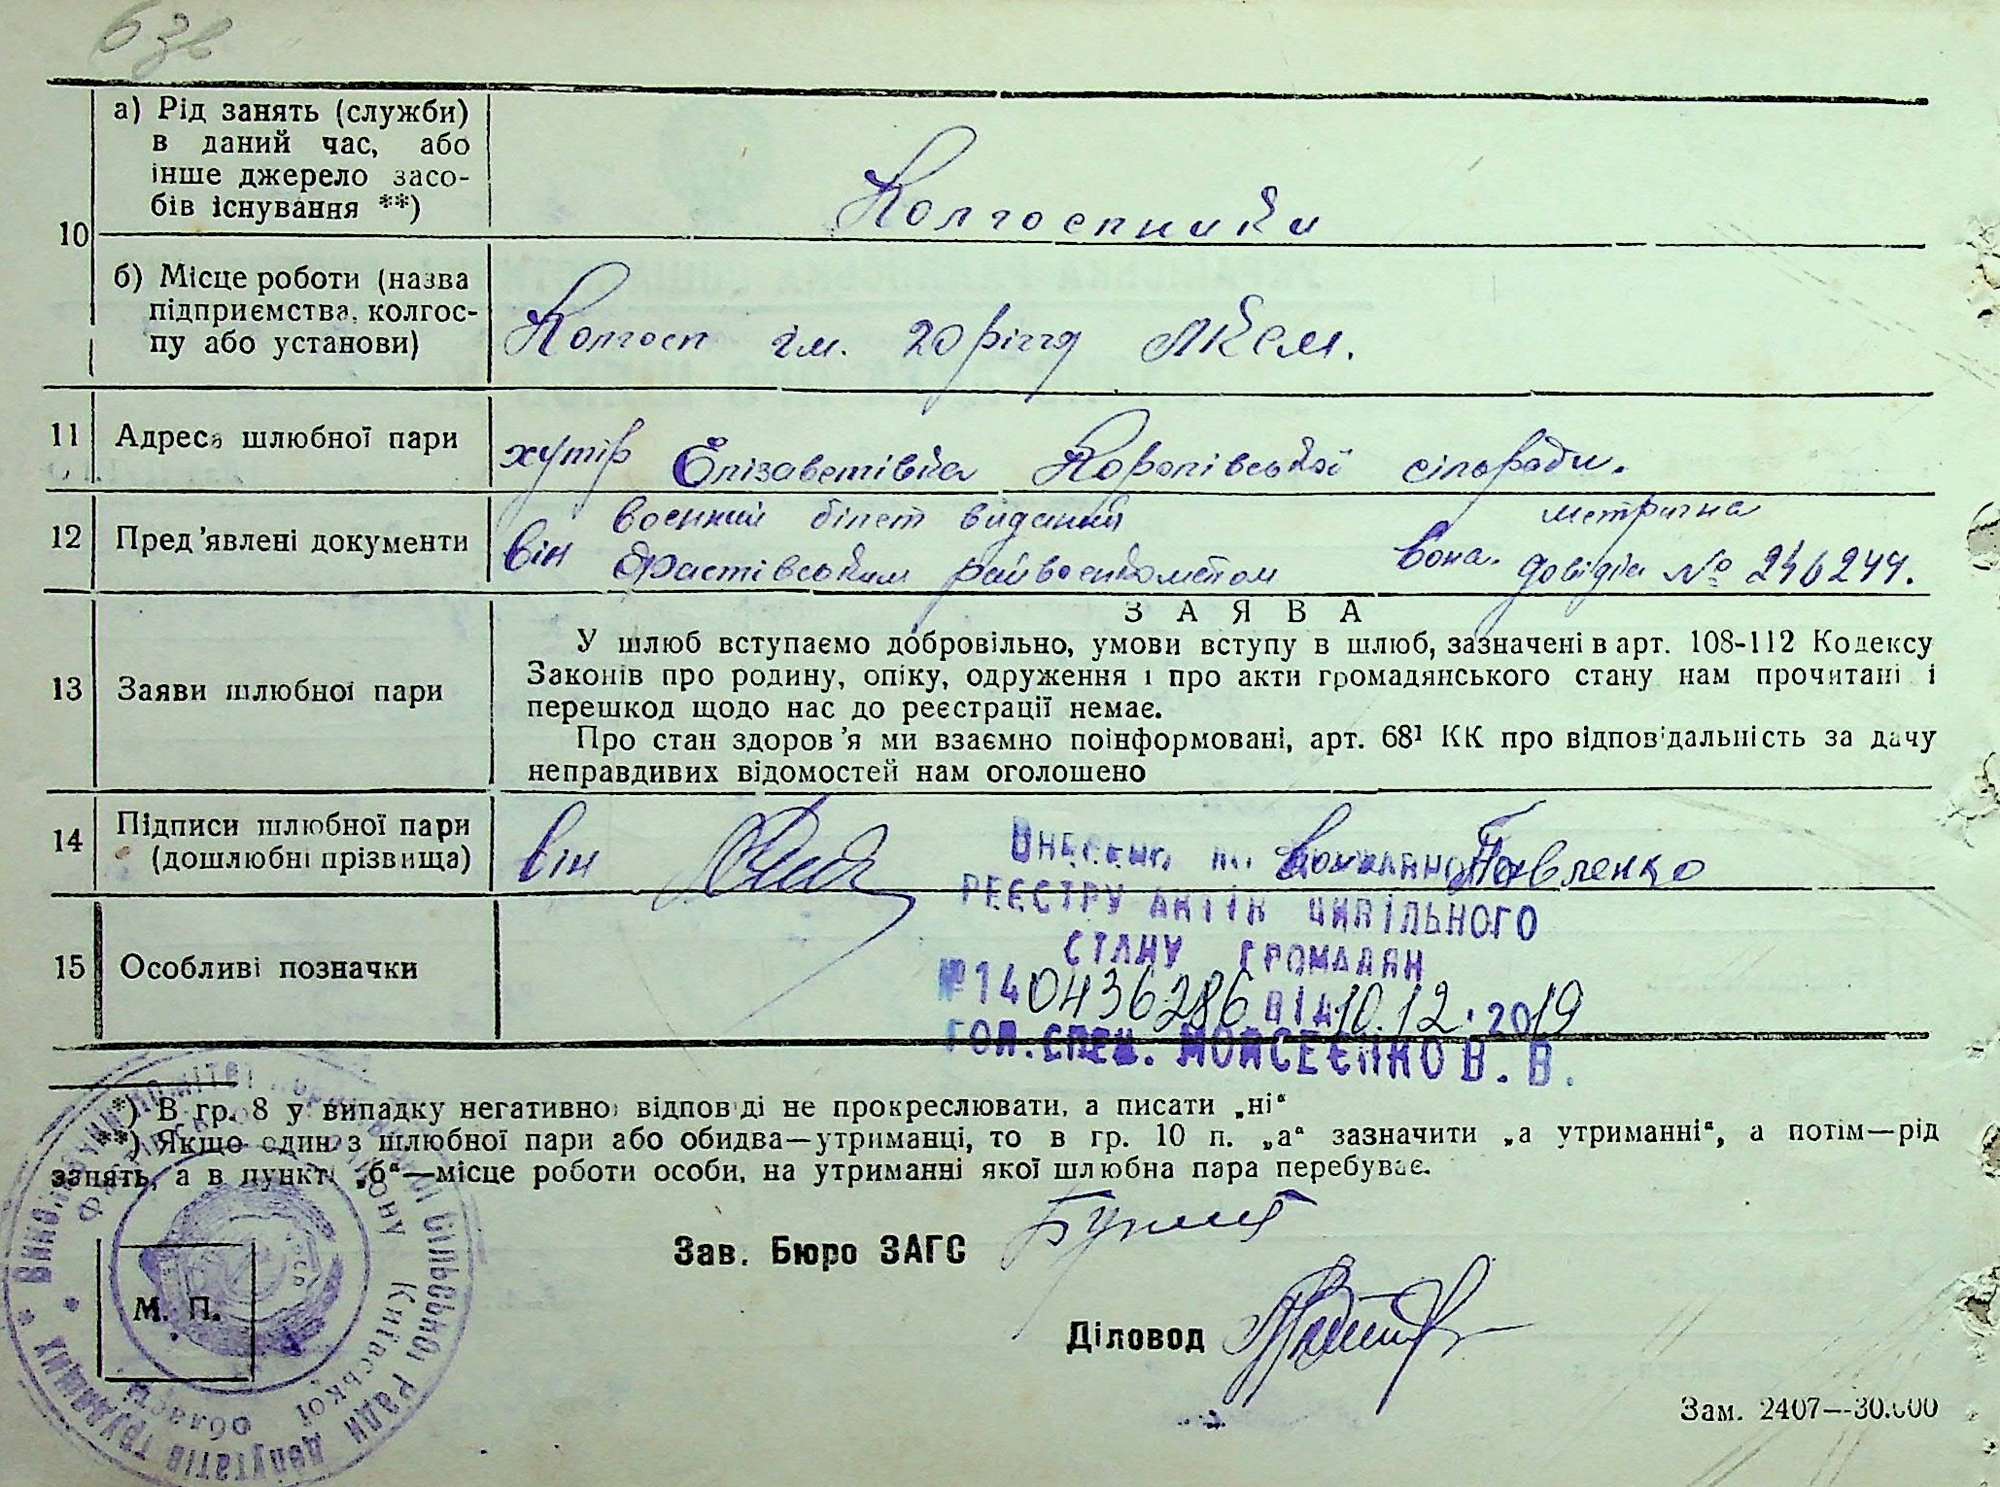 63в
10
а) Рід занять (служби)
в даний час, або
інше джерело засо-
бів існування **)
Колгоспники
б) Місце роботи (назва
підприємства, колгос-
пу або установи)
Колгосп ім. 20 річчя ЛКСМ.
11 Адреса шлюбної пари
хутір Єлізаветівка Королівської сільради.
12 Пред'явлені документи
він воєнний білет виданий
Фастівським райвоєнкоматом
вона. метрична
довідка № 246244.
13 Заяви шлюбної пари
ЗАЯВА
У шлюб вступаємо добровільно, умови вступу в шлюб, зазначені в арт. 108-112 Кодексу
Законів про родину, опіку, одруження і про акти громадянського стану нам прочитані і
перешкод щодо нас до реєстрації немає.
Про стан здоров'я ми взаємно поінформовані, арт. 68¹ КК про відповідальність за дачу
неправдивих відомостей нам оголошено
14 Підписи шлюбної пари
(дошлюбні прізвища)
він
вона Павленко
Внесено до Державного
РЕЄСТРУ АКТІВ ЦИВІЛЬНОГО
СТАНУ ГРОМАДЯН
№ 140436286 ВІД 10.12.2019
ГОЛ. СПЕЦ. МОЙСЕЄНКО В. В.
15 Особливі позначки
*) В гр. 8 у випадку негативної відповіді не прокреслювати, а писати „ні“
**) Якщо один з шлюбної пари або обидва—утриманці, то в гр. 10 п. „а“ зазначити „а утриманні“, а потім—рід
занять, а в пункті „б“—місце роботи особи, на утриманні якої шлюбна пара перебуває.
Зав. Бюро ЗАГС
Діловод
М. П.
Виконавчий комітет сільської Ради депутатів трудящих
району Київської області
Зам. 2407—30.000